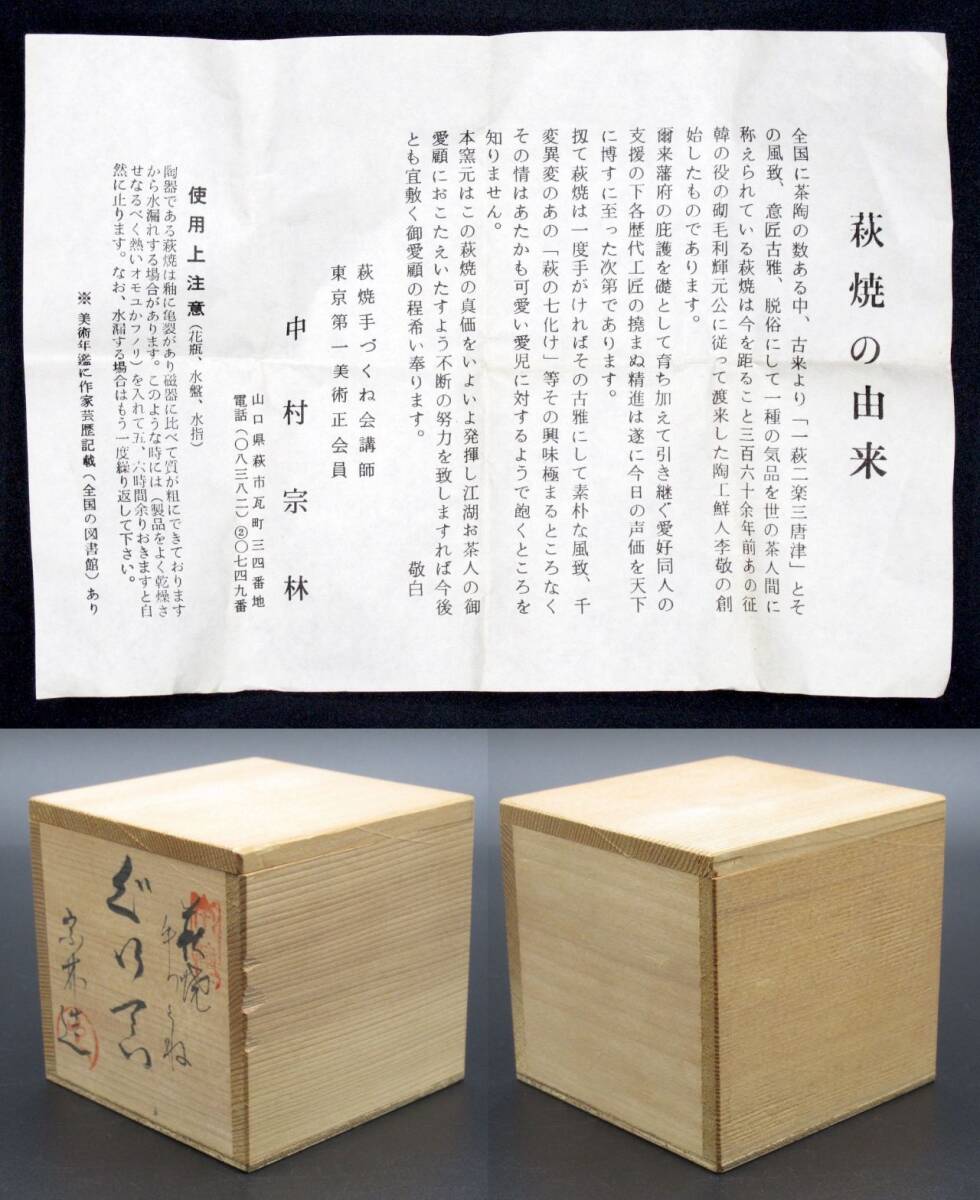 萩焼の由来
全国に茶陶の数ある中、古来より「一萩二楽三唐津」とそ
の風致、意匠古雅、脱俗にして一種の気品を世の茶人間に
称えられている萩焼は今を距ること三百六十余年前あの征
韓の役の砌毛利輝元公に従って渡来した陶工鮮人李敬の創
始したものであります。
爾来藩府の庇護を礎として育ち加えて引き継ぐ愛好同人の
支援の下各歴代工匠の撓まぬ精進は遂に今日の声価を天下
に博すに至った次第であります。
扨て萩焼は一度手がければその古雅にして素朴な風致、千
変異変のあの「萩の七化け」等その興味極まるところなく
その情はあたかも可愛い愛児に対するようで飽くところを
知りません。
本窯元はこの萩焼の真価をいよいよ発揮し江湖お茶人の御
愛顧におこたえいたすよう不断の努力を致しますれば今後
とも宜敷く御愛顧の程希い奉ります。
敬白
萩焼手づくね会講師
東京第一美術正会員
中村宗林
山口県萩市瓦町三四番地
電話(〇八三八二)②〇七四九番
使用上注意(花瓶、水盤、水指)
陶器である萩焼は釉に亀裂があり磁器に比べて質が粗にできております
から水漏れする場合があります。このような時には(製品をよく乾燥さ
せなるべく熱いオモユかフノリ)を入れて五、六時間余りおきますと自
然に止ります。なお、水漏する場合はもう一度繰り返して下さい。
※美術年鑑に作家芸歴記載(全国の図書館)あり
萩焼
手づくね
ぐい呑
宗林造